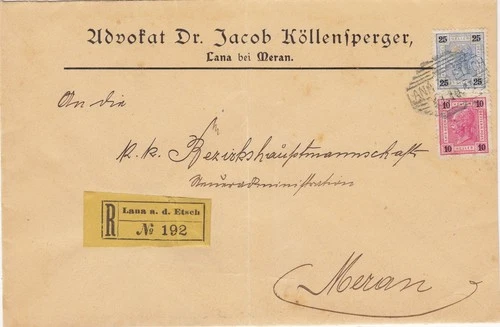 Advokat Dr. Jacob Köllensperger,
Lana bei Meran.
25 25
25 25
10 10
10 10
An die
k. k. Bezirkshauptmannschaft
Steueradministration
R
Lana a. d. Etsch
No 192
Meran